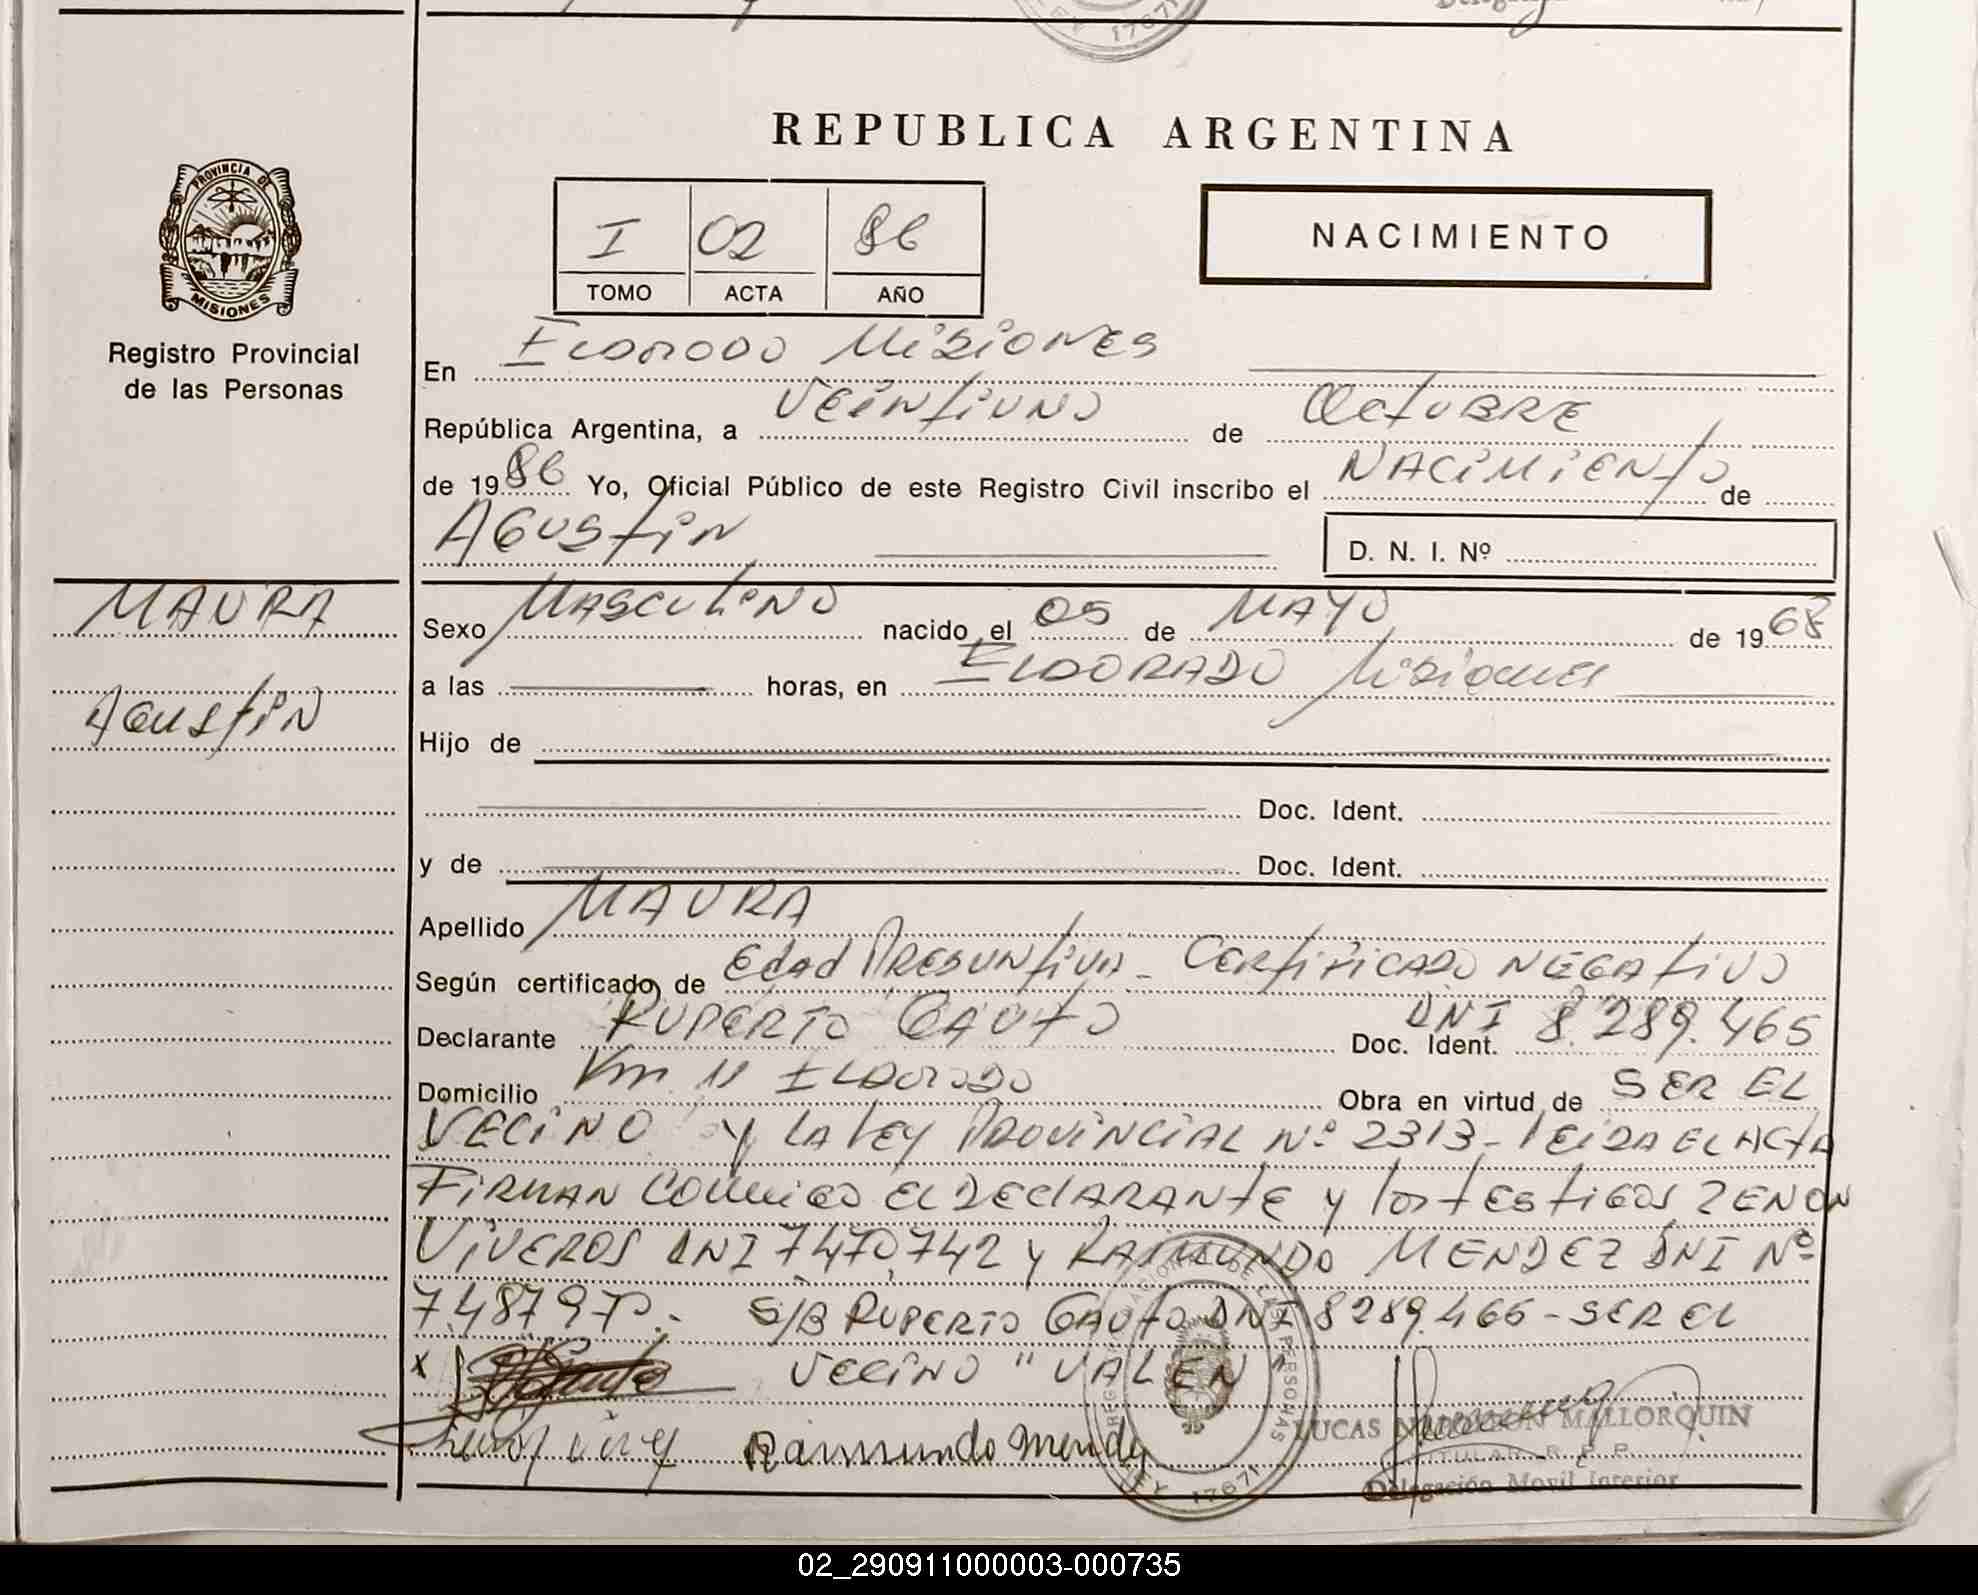 LEY 17671
REPUBLICA ARGENTINA
PROVINCIA DE
MISIONES
Registro Provincial
de las Personas
I 02 86
TOMO ACTA AÑO
NACIMIENTO
En Eldorado Misiones
República Argentina, a Veintiuno de Octubre
de 1986 Yo, Oficial Público de este Registro Civil inscribo el Nacimiento de
Agustin D. N. I. Nº
MAURA
Agustin
Sexo Masculino nacido el 05 de Mayo de 1968
a las horas, en Eldorado Misiones
Hijo de
Doc. Ident.
y de Doc. Ident.
Apellido MAURA
Según certificado de Edad Presuntiva - Certificado Negativo
Declarante Ruperto Gauto Doc. Ident. DNI 8.289.465
Domicilio Km 11 Eldorado Obra en virtud de ser el
vecino y la ley Provincial Nº 2313 - leida el acta
Firman conmigo el declarante y los testigos Zenon
Viveros DNI 7470.742 y Raimundo Mendez DNI Nº
S/B Ruperto Gauto DNI 8289.466 - ser el
x vecino "Valen"
Raimundo Mendez
LUCAS MALLORQUIN
TITULAR R. P. P.
Delegación Movil Interior
LEY 17671
02_290911000003-000735